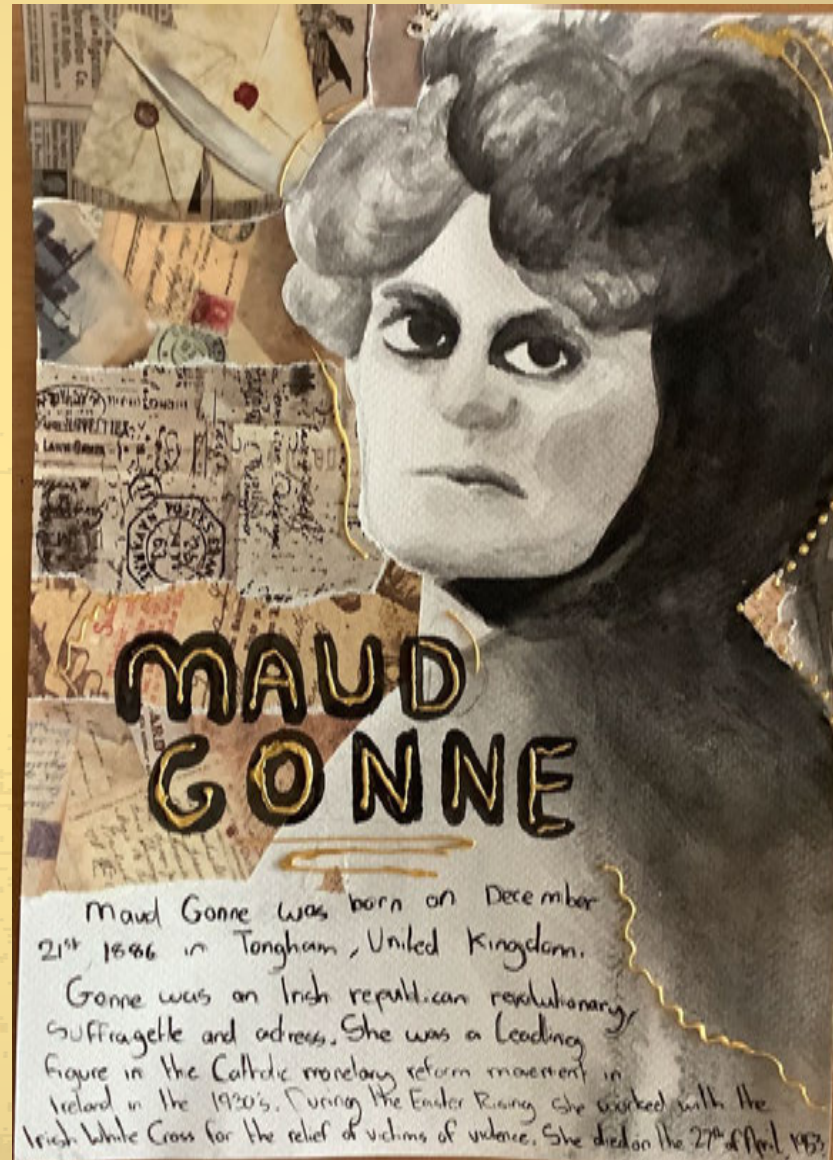 MAUD
GONNE
Maud Gonne was born on December
21st 1886 in Tongham, United Kingdom.
Gonne was an Irish republican revolutionary,
suffragette and actress. She was a Leading
figure in the Catholic monetary reform movement in
Ireland in the 1930's. During the Easter Rising she worked with the
Irish White Cross for the relief of victims of violence. She died on the 27th of April 1953.